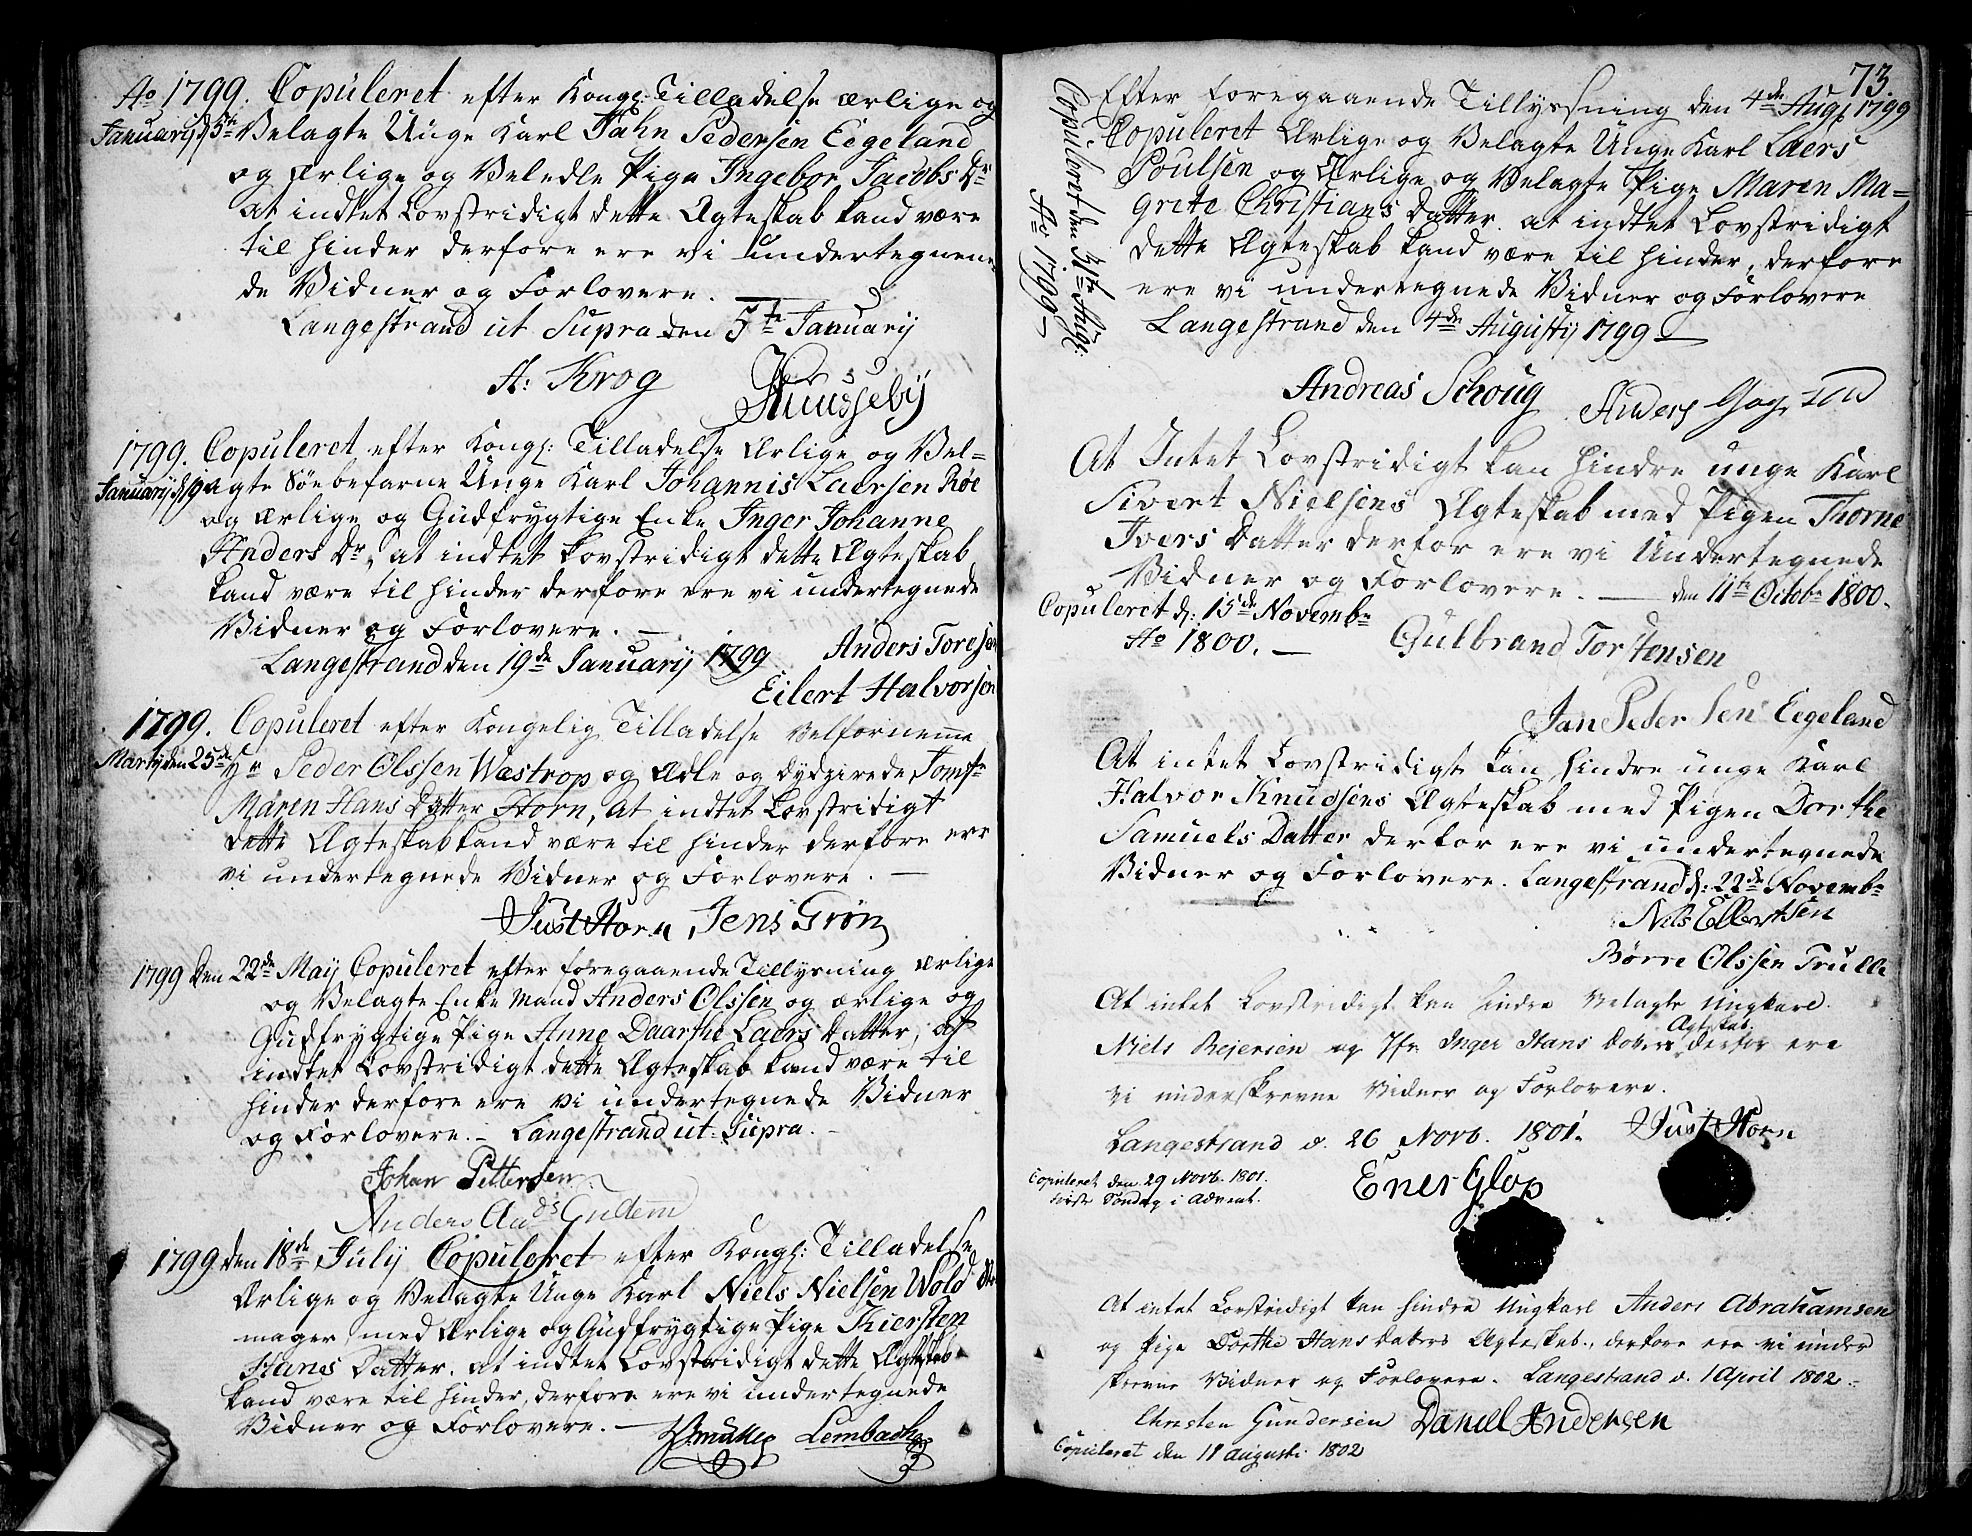 Ao 1799. Copuleret efter Kongl: Tilladelse Ærlige og
Januarij d 5te Velagte Unge Karl Jahn Pedersen Eegeland
og Ærlige og Veledle Pige Ingebor Jacobs Dr
at indtet Lovstridigt dette Ægteskab kand være
til hinder derfore ere vi undertegnen-
de Vidner og Forlovere.
Langestrand ut Supra den 5te Januarij
A: Krog
Knussebÿ
1799. Copuleret efter Kongl: Tilladelse Ærlige og Vel-
Januarij d 19 agte Söebefarne Unge Karl Johannis Laersen Röe
og Ærlige og Gudfrygtige Enke Inger Johanne
Anders Dr, at indtet Lovstridigt dette Ægteskab
kand være til hinder derfore ere vi undertegnede
Vidner og Forlovere. —
Langestrand den 19de Januarij 1799 Anders Toresen
Eilert Halvorsen
1799. Copuleret efter Kongelig Tilladelse Velfornemme
Martij den 25de Hr Peder Olssen Wæstrop og Ædle og dydzirede Jomfr
Maren Hans Datter Horn, at indtet Lovstridigt
dette Ægteskab kand være til hinder derfore ere
vi undertegnede Vidner og Forlovere. —
Just Horn, Jens Grön
1799 den 22de Maij Copuleret efter foregaaende Tillysning ærlige
og Velagte Enke Mand Anders Olssen og ærlige og
Gudfrygtige Pige Anne Daarthe Laers Datter, at
indtet Lovstridigt dette Ægteskab kand være til
hinder derfore ere vi undertegnede Vidner
og Forlovere. — Langestrand ut Supra. —
Johan Pettersen
Anders Gundem
1799 den 18de Julij Copuleret efter Kongl: Tilladelse
Ærlige og Velagte Unge Karl Niels Nielsen Wold
mager med Ærlige og Gudfrygtige Pige Kiersten
Hans Datter. at indtet Lovstridigt dette Ægteskab
kand være til hinder, derfore ere vi undertegnede
Vidner og Forlovere. —
Lembach
73.
Copuleret den 31te Aug:
Ao 1799 —
Efter foregaaende Tillysning den 4de Aug: 1799
Copuleret Ærlige og Velagte Unge Karl Laers
Poulsen og Ærlige og Velagte Pige Maren Ma=
grete Christians Datter. at indtet Lovstridigt
dette Ægteskab kand være til hinder, derfore
ere vi undertegnede Vidner og Forlovere
Langestrand den 4de Augustij 1799 —
Andreas Schoug Anders
At Intet Lovstridigt kan hindre unge Karl
Sivert Nielsens Ægteskab med Pigen Thorne
Ivers Datter derfor ere vi Undertegnede
Vidner og Forlovere. — den 11te Octobr 1800.
Copuleret d: 15de Novembr
Ao 1800. —
Gulbrand Torstensen
Jan Peder Sen Eegeland
At intet Lovstridigt kan hindre unge Karl
Halvor Knudsens Ægteskab med Pigen Dorthe
Samuels Datter derfor ere vi undertegnede
Vidner og Forlovere. Langestrand d: 22de Novembr
Nils Ellertsen
Börre Olssen Trulle
At intet Lovstridigt kan hindre Velagte Ungkarl.
Niels Rejersen og Jfr Inger Hans Doters Ægteskab derfor ere
vi underskrevne Vidner og Forlovere.
Langestrand d. 26 Novb. 1801. Just Horn
Copuleret den 29 Novb. 1801.
förste Söndag i Advent.
Ener Glop
At intet Lovstridigt kan hindre Ungkarl Anders Abrahamsen
og Pige Dorthe Hans Datters Ægteskab, derfore ere vi under
skrevne Vidner og Forlovere. Langestrand d. 1 April 1802.
Christen Gundersen Daniel Andersen
Copuleret den 18 Augusti 1802